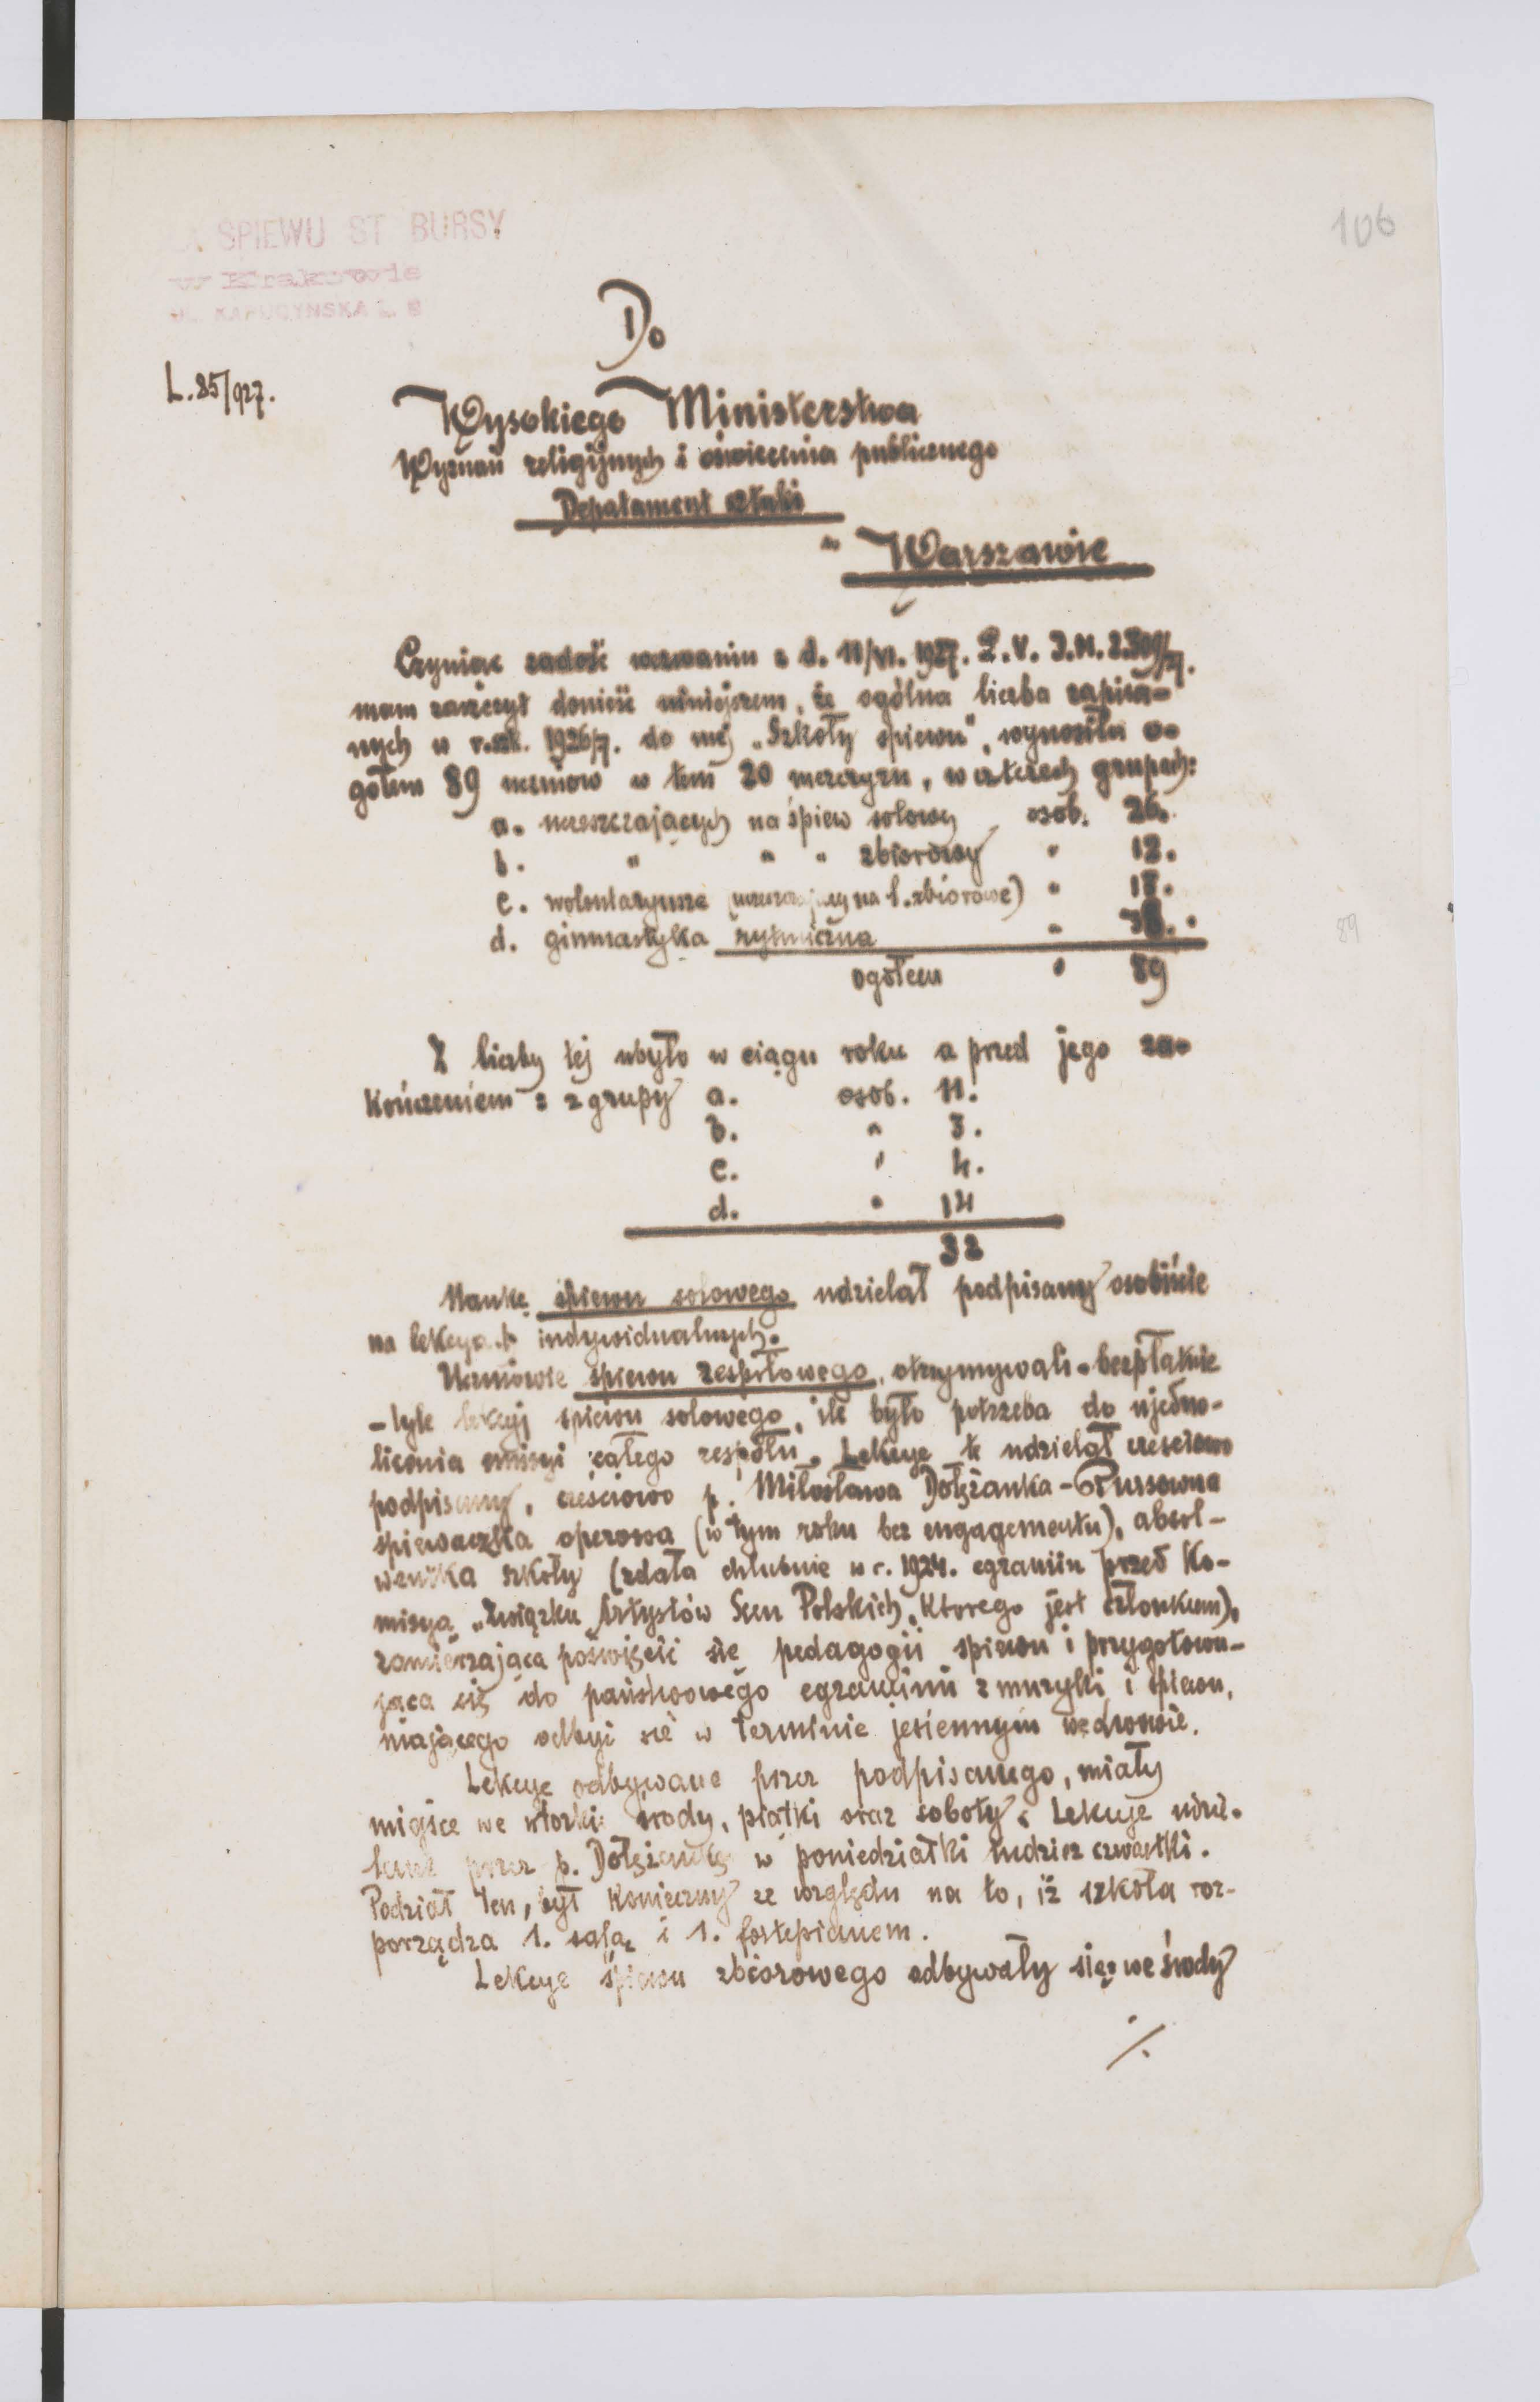 ŚPIEWU ST BURSY
w Krakowie
UL. KAPUCYŃSKA L.
106
Do
L. 85/927.
Wysokiego Ministerstwa
Wyznań religijnych i oświecenia publicznego
Depatament sztuki
w Warszawie
Czyniąc zadość wezwaniu z d. 11/VI. 1927.
mam zaszczyt donieść niniejszem, że ogólna liczba zapisa-
nych w r. szk. 1926/7. do mej „Szkoły śpiewu", wynosiła o-
gółem 89 uczniow w tem 20 mezczyzn, w czterech grupach:
a. uczeszczajacych na śpiew solowy osób. 26.
b. " " " zbiorowy "
c. wolontaryusze (uczeszczający na l. zbiorowe) "
d. gimnastyka rytmiczna "
ogółem " 89
Z liczby tej ubyło w ciągu roku a przed jego za-
kończeniem : z grupy a. osob. 11.
b. " 3.
c. " 4.
d. " 14
32
89
Naukę śpiewu solowego udzielał podpisany osobiście
na lekcyach indywidualnych.
Uczniowie śpiewu zespołowego, otrzymywali - bezpłatnie
- tyle lekcyj śpiewu solowego, ile było potrzeba do ujedno-
licenia emisyi całego zespołu. Lekcye te udzielał cześciowo
podpisany, cześciowo p. Miłosława Dołżanka-
śpiewaczka operowa (w tym roku bez engagementu), absol-
wentka szkoły (zdała chlubnie w r. 1924. egzamin przed Ko-
misyą „Związku Artystów Scen Polskich", ktorego jest członkiem),
zamierzająca poświęcić się pedagogii śpiewu i przygotowu-
jąca się do państwowego egzaminu z muzyki i śpiewu,
mającego odbyć się w terminie jesiennym we Lwowie.
Lekcye odbywane przez podpisanego, miały
miejsce we wtorki środy, piatki oraz soboty. Lekcye udzie-
lane przez p. Dołżankę w poniedziałki tudzież czwartki.
Podział ten, był konieczny ze względu na to, iż szkoła roz-
porządza 1. salą i 1. fortepianem.
Lekcye śpiewu zbiorowego odbywały się: we środy
./.